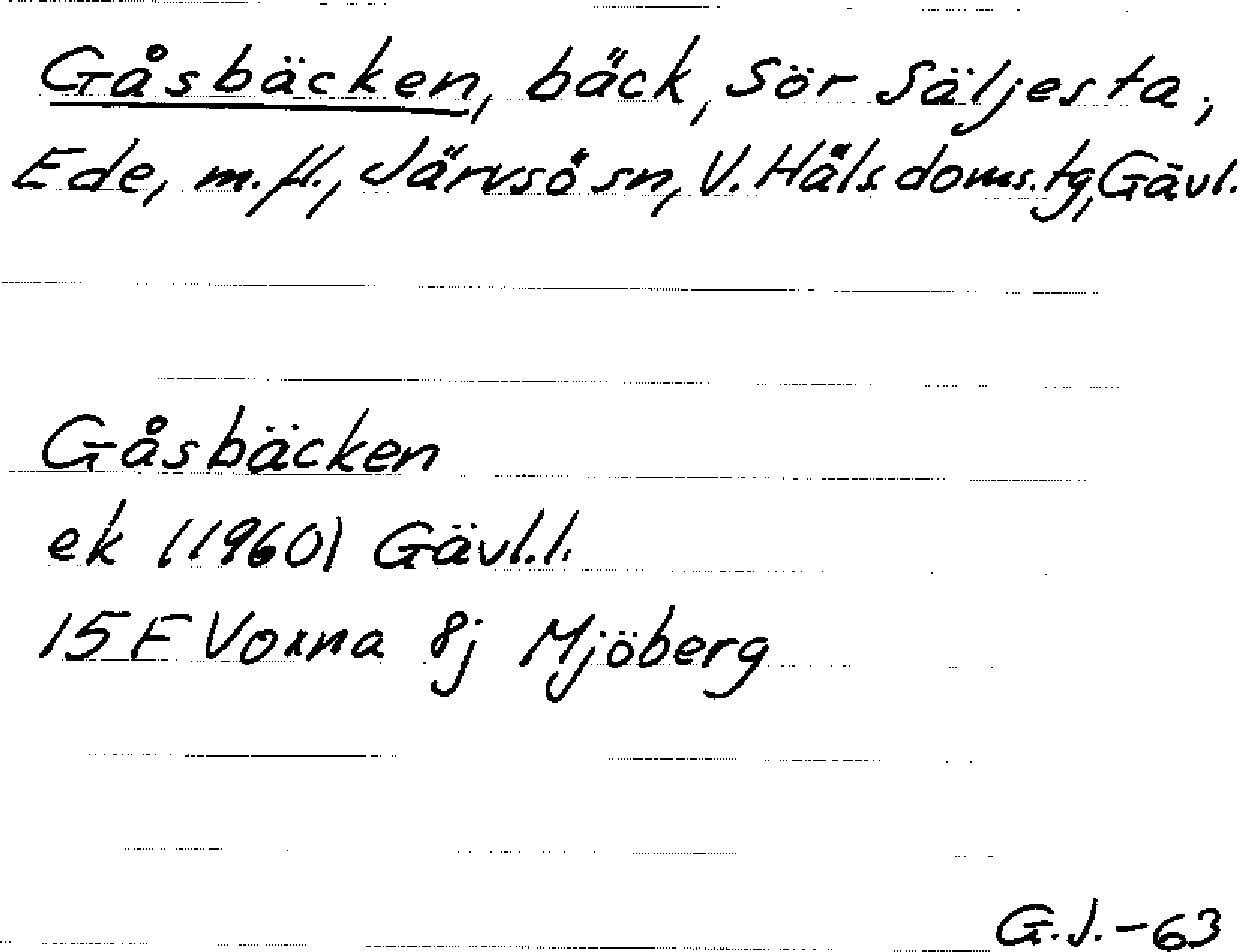 Gåsbäcken, bäck, Sör Säljesta,
Ede, m.fl., Järvsö sn, V. Häls. doms.tg, Gävl.
Gåsbäcken
ek (1960) Gävl.l.
15F Voxna 8j Mjöberg
G.J.-63